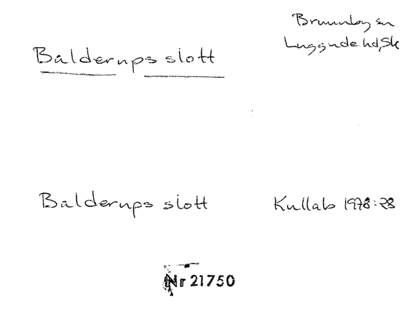 Brunnby sn
Luggude hd, Sk
Balderups slott
Balderups slott
Kullab 1978:28
Nr 21750